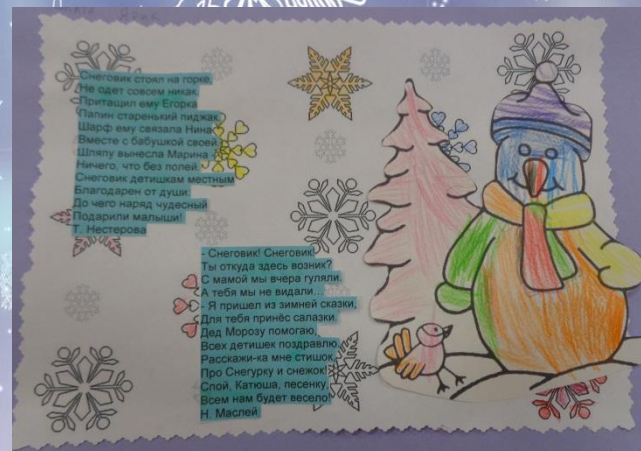 Снеговик стоял на горке,
Не одет совсем никак.
Притащил ему Егорка
Папин старенький пиджак.
Шарф ему связала Нина
Вместе с бабушкой своей.
Шляпу вынесла Марина -
Ничего, что без полей.
Снеговик детишкам местным
Благодарен от души:
До чего наряд чудесный
Подарили малыши!
Т. Нестерова
- Снеговик! Снеговик!
Ты откуда здесь возник?
С мамой мы вчера гуляли,
А тебя мы не видали...
- Я пришел из зимней сказки,
Для тебя принёс салазки.
Дед Морозу помогаю,
Всех детишек поздравлю.
Расскажи-ка мне стишок
Про Снегурку и снежок!
Спой, Катюша, песенку,
Всем нам будет весело!
Н. Маслей